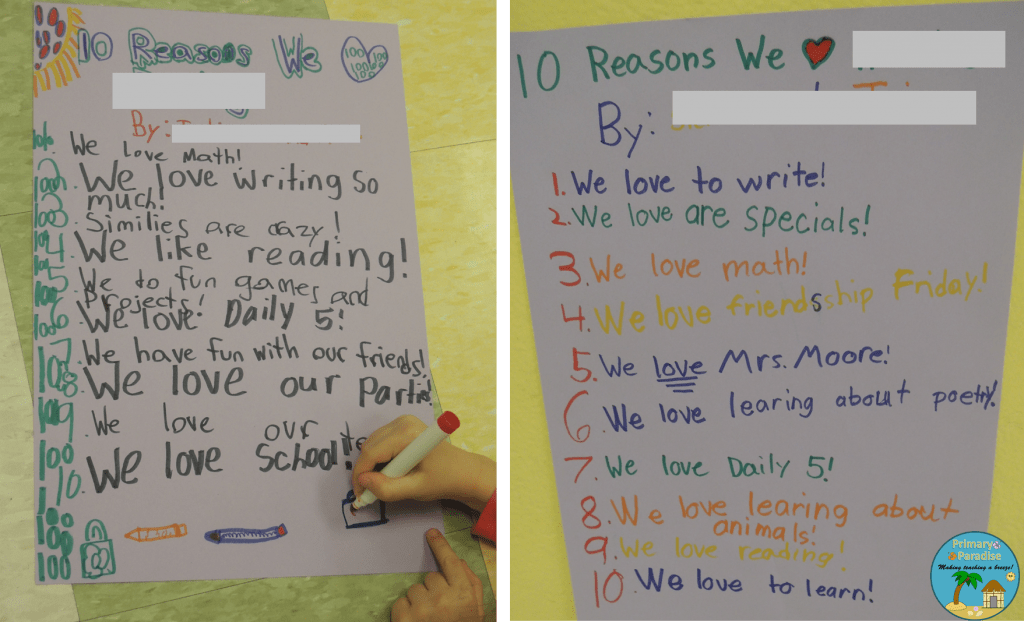 10 Reasons We
100 100 100 100
By:
We
Love Math!
2. We love writing so
much!
3. Similies are cazy!
4. We like reading!
5. We to fun games and
Projects!
6. We love Daily 5!
7. We have fun with our friends!
8. We love our Parties!
9. We love our
10. We love School!
100
100
100
10 Reasons We
By:
1. We love to write!
2. We love are specials!
3. We love math!
4. We love friendsship Friday!
5. We love Mrs. Moore!
6. We love learing about poetry!
7. We love Daily 5!
8. We love learing about
animals!
9. We love reading!
10. We love to learn!
Primary
Paradise
Making teaching a breeze!